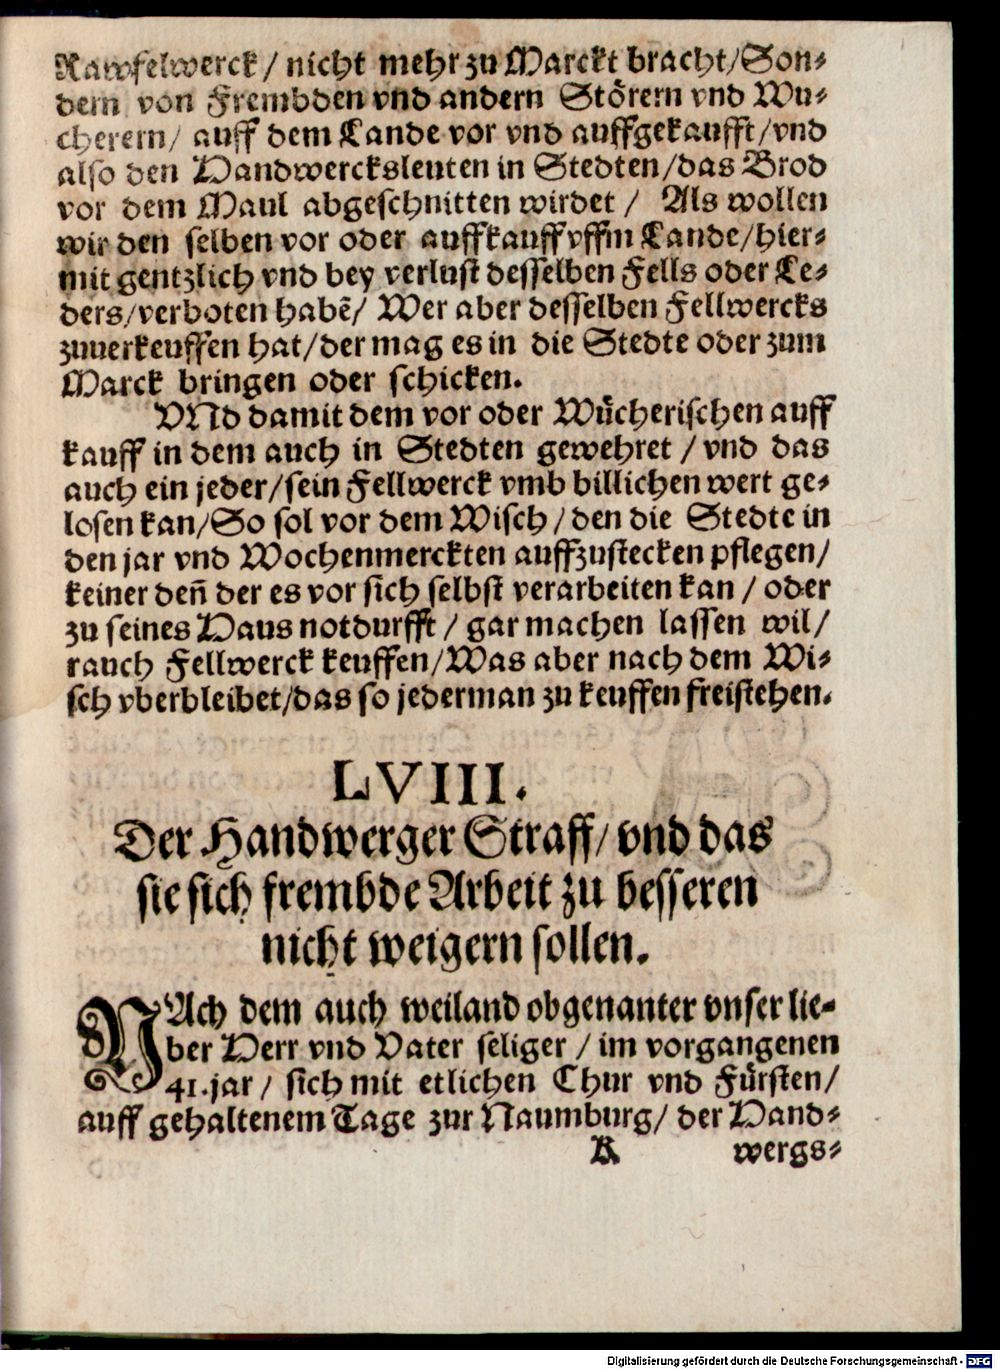 Rawfelwerck / nicht mehr zu Marckt bracht/Son⸗
dern von Frembden vnd andern Stőrern vnd Wu⸗
cherern/ auff dem Lande vor vnd auffgekaufft/vnd
also den Handwercksleuten in Stedten/das Brod
vor dem Maul abgeschnitten wirdet / Als wollen
wir den selben vor oder auffkauff vffm Lande/hier⸗
mit gentzlich vnd bey verlust desselben Fells oder Le⸗
ders/verboten habē/ Wer aber desselben Fellwercks
zuuerkeuffen hat/der mag es in die Stedte oder zum
Marck bringen oder schicken.
VNd damit dem vor oder Wůcherischen auff
kauff in dem auch in Stedten gewehret / vnd das
auch ein jeder/sein Fellwerck vmb billichen wert ge⸗
losen kan/So sol vor dem Wisch/den die Stedte in
den jar vnd Wochenmerckten auffzustecken pflegen/
keiner deñ der es vor sich selbst verarbeiten kan / oder
zu seines Haus notdurfft / gar machen lassen wil/
rauch Fellwerck keuffen/Was aber nach dem Wi⸗
sch vberbleibet/das so jederman zu keuffen freistehen.
LVIII.
Der Handwerger Straff/ vnd das
sie sich frembde Arbeit zu besseren
nicht weigern sollen.
NAch dem auch weiland obgenanter vnser lie⸗
ber Herr vnd Vater seliger / im vorgangenen
41.jar / sich mit etlichen Chur vnd Fůrsten/
auff gehaltenem Tage zur Naumburg/ der Hand⸗
K wergs⸗
Digitalisierung gefördert durch die Deutsche Forschungsgemeinschaft - DFG